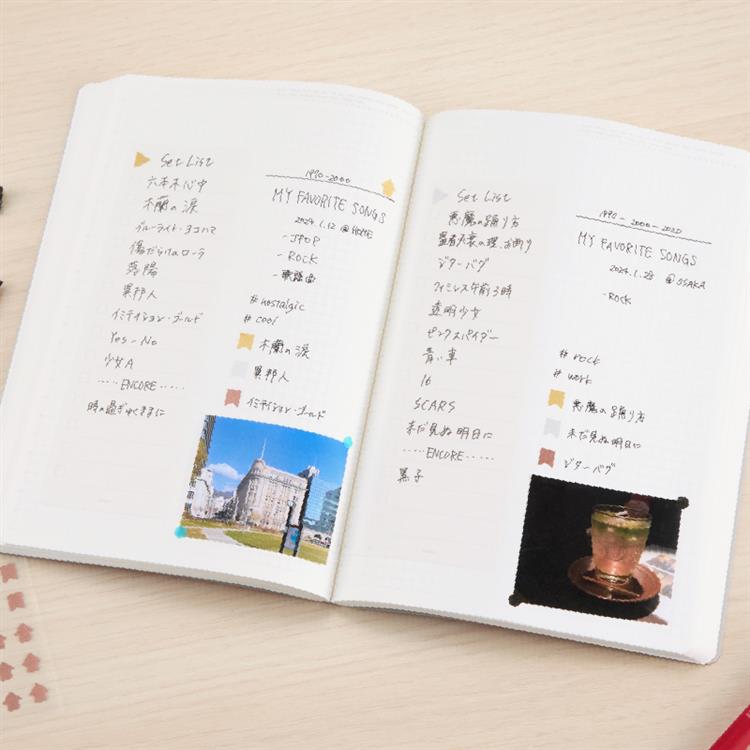 Set List
六本木心中
木蘭の涙
ブルーライト・ヨコハマ
傷だらけのローラ
落陽
異邦人
イミテイション・ゴールド
Yes-No
少女A
‥‥ENCORE‥‥‥
時の過ぎゆくままに
1990-2000
MY FAVORITE SONGS
2024.1.12 @HOME
-JPOP
-ROCK
-歌謡曲
#nostalgic
#cool
木蘭の涙
異邦人
イミテイション・ゴールド
Set List
悪魔の踊り方
ジターバグ
ファミレス午前3時
透明少女
ピンクスパイダー
青い車
16
SCARS
まだ見ぬ明日に
‥‥ENCORE‥‥‥
黒子
1990-2000-2020
MY FAVORITE SONGS
@OSAKA
-ROCK
#rock
#work
悪魔の踊り方
まだ見ぬ明日に
ジターバグ